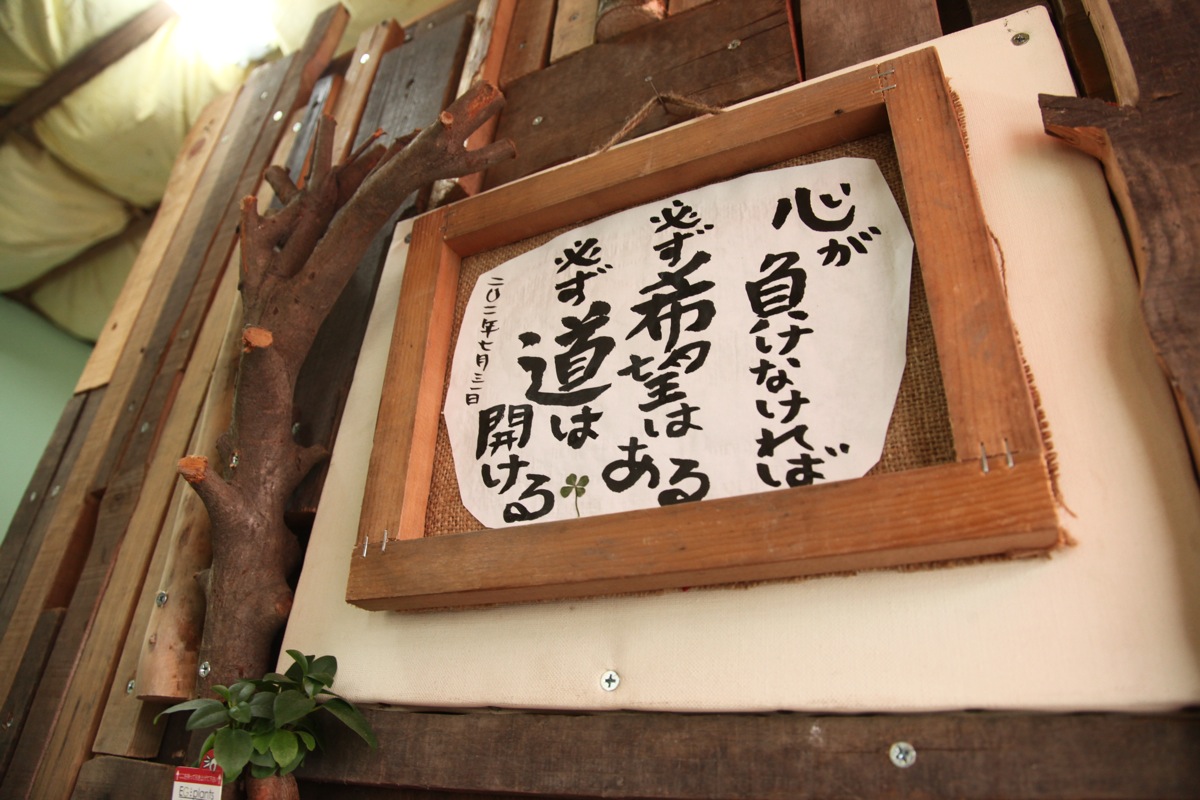 心が
負けなければ
必ず希望は
ある
必ず道は
開ける
二〇一一年七月三一日
EGplants